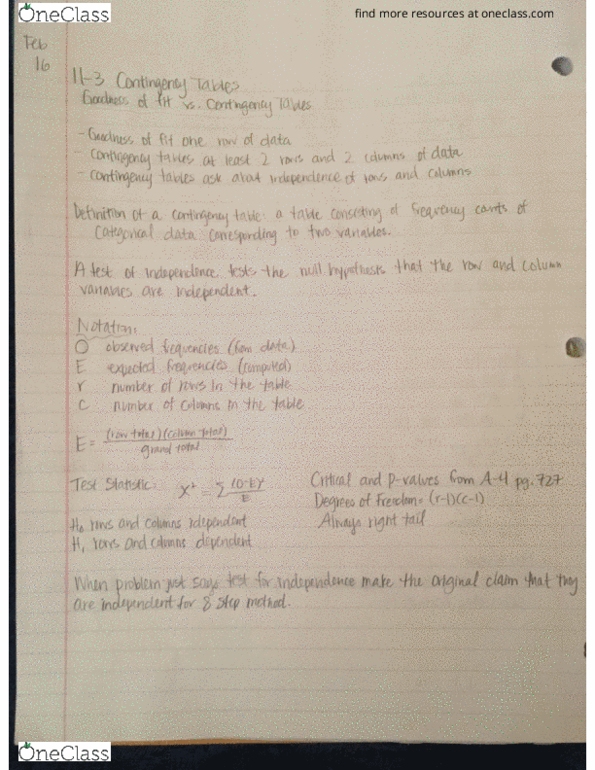 OneClass
find more resources at oneclass.com
Feb
16
11-3 Contingency Tables
Goodness of fit vs. Contingency Tables
- Goodness of fit one row of data
- contingency tables at least 2 rows and 2 columns of data
- contingency tables ask about independence of rows and columns
Definition of a contingency table: a table consisting of frequency counts of
categorical data corresponding to two variables.
A test of independence tests the null hypothesis that the row and column
variables are independent.
Notation:
O observed frequencies (from data)
E expected frequencies (computed)
r number of rows in the table
c number of columns in the table
E = (row total)(column total) / grand total
Test Statistic: X² = Σ (O-E)² / E
Critical and P-values from A-4 pg. 727
Degrees of Freedom = (r-1)(c-1)
Always right tail
H₀ rows and columns independent
H₁ rows and columns dependent
When problem just says test for independence make the original claim that they
are independent for 8 step method.
OneClass